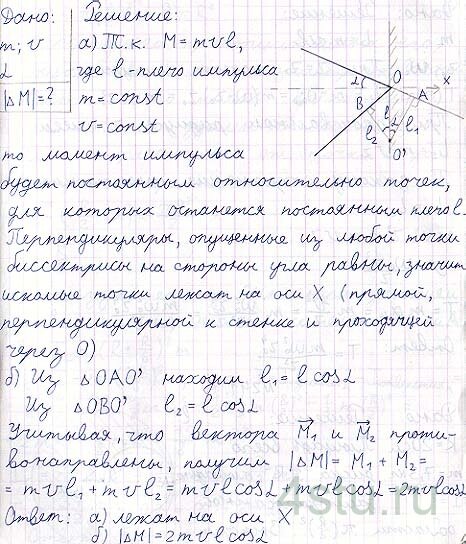 Дано: Решение:
m; v а) Т.к. M = mvl,
α где l - плечо импульса
|ΔM| = ? m = const
v = const
α O A x
B l₂ α l₁
O'
то момент импульса
будет постоянным относительно точек,
для которых останется постоянным плечо l.
Перпендикуляры, опущенные из любой точки
биссектрисы на стороны угла равны, значит
искомые точки лежат на оси X (прямой,
перпендикулярной к стенке и проходящей
через O)
б) Из ΔOAO' находим l₁ = l cosα
Из ΔOBO' l₂ = l cosα
Учитывая, что вектора M⃗₁ и M⃗₂ проти-
вонаправлены, получим |ΔM| = M₁ + M₂ =
= mvl₁ + mvl₂ = mvl cosα + mvl cosα = 2mvl cosα
4stu.ru
Ответ: а) лежат на оси X
б) |ΔM| = 2mvl cosα